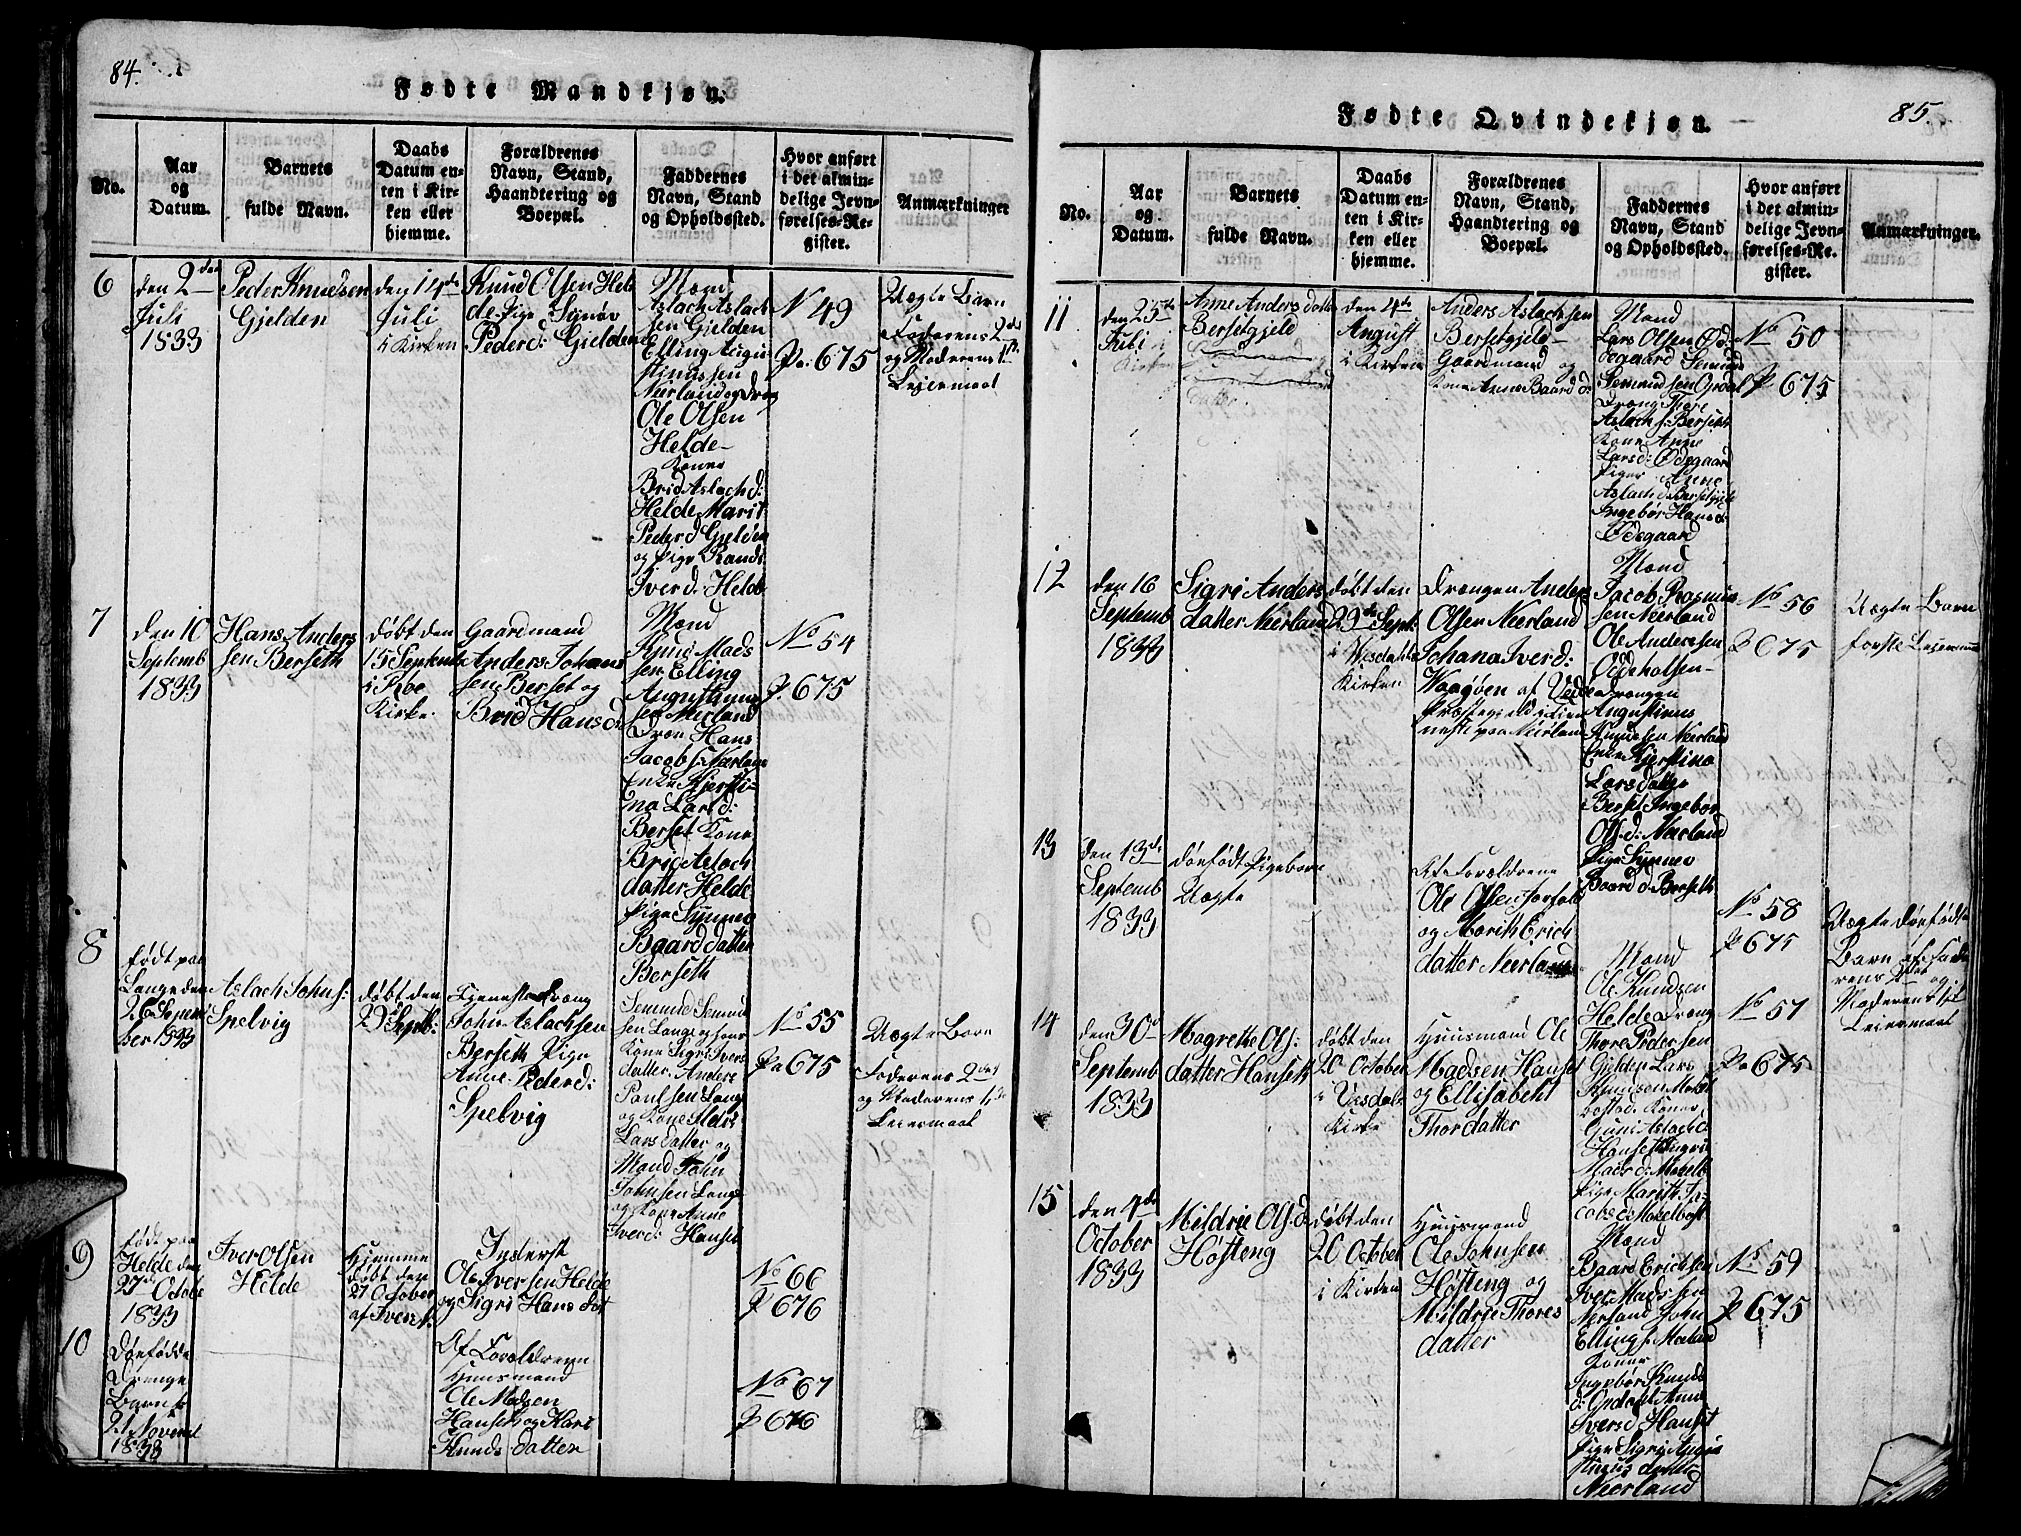 84.
Fødte Mandkjøn.
No.
Aar
og
Datum.
Barnets
fulde Navn.
Daabs
Datum en-
ten i Kir-
ken eller
hjemme.
Forældrenes
Navn, Stand,
Haandtering og
Boepæl.
Faddernes
Navn, Stand
og Opholdssted.
Hvor anført
i det almin-
delige Jevn-
førelses-Re-
gister.
Anmærkninger
6
den 2den
Juli
1833
Peder Knudsen
Gjelden
den 14de
Juli
i Kirken
Knud Olsen Hel-
de Pige Signøv
Pederd: Gjelden
Mænd
Aslach Aslach
sen Gjelden
Elling Augu
stinussen
Nerland og Dreng
Ole Olsen
Helde-
Koner
Brid Aslachd:
Helde Marit
Pederd Gjelden
og Pige Rande
Iverd: Helde
N 49
Pa. 675
Uægte Barn
Faderens 2det
og Moderens 1te
Leiermaal
7
den 10
Septemb
1833
Hans Anders
sen Berseth
døbt den
15 Septemb
i
Kirke
Gaardmand
Anders Johans
sen Berset og
Brid Hansd:
Mænd
Knud Mads
sen Elling
Augustinus
sen Nerland
Hans
Jacobs: Nerland
Enke Kjersti-
na Larsd:
Berset Kone
Brid Aslach
datter Helde
Pige Synnev
Baard datter
Berseth
No 54
P. 675
8
født paa
Lange den
26 Septem
ber 1833
Aslach Johns:
Spelvig
døbt den
29 Septb:
Tjenestedreng
John Aslachsen
Berseth Pige
Anne Pederd:
Spelvig
Semund Semund
sen Lange og hans
Kone Sigri Ivers
datter, Anders
Paulsen Lange
og Kone
Lars datter og
Mand John
Johnsen Lange
og Kone Anne
Iverd: Hanset
No 55
Pa 675
Uægte Barn
Faderens 2det
og Moderens 1te
Leiermaal
9
født paa
Helde den
27de Octobe
1833
Iver Olsen
Helde
Hjemme
døbt den
27 October
af Iver
Inderst
Ole Iversen Helde
og Sigri Hans dat
No 66
P 676
10
Dødfødde
Drenge
Barn
21 Novemb
1833
Af Forældrene
Huusmand
Ole Madsen
Hanset og Kari
Knuds datter
No 67
P 676
85.
Fødte Qvindekjøn.
No.
Aar
og
Datum.
Barnets
fulde Navn.
Daabs
Datum en-
ten i Kir-
ken eller
hjemme.
Forældrenes
Navn, Stand,
Haandtering og
Boepæl.
Faddernes
Navn, Stand
og Opholdssted.
Hvor anført
i det almin-
delige Jevn-
førelses-Re-
gister.
Anmærkninger.
11
den 25de
Juli
Anne Anders datter
Bersetgjeld
den 4de
August
i Kirken
Anders Aslachsen
Bersetgjeld
Gaardmand og
Kone Anne Baard d:
Mænd
Lars Olsen Øde-
Ødegaard Semund
Semundsen Opdøl
Dreng Thore
Aslachs: Berseth
Kone Anne
Larsd: Ødegaard
Piger Anne
Aslachd: Bersetgjeld
Ingebør Hansd:
Ødegaard
No 50
P 675
12
den 16
Septemb
1833
Sigri Anders
datter Nerland
døbt den
29de Sept.
i Vesdahls
Kirken
Drengen Anders
Olsen Nerland
Johana Iverd:
Waagøen af Vedø
Præstegield i Tien
neste paa Nerland
Mænd
Jacob Rasmus
sen Nerland
Ole Andersen
Oldeholsen
Drengen
Augustinus
Knudsen Nerland
Enke Kjerstina
Lars datter
Berset Ingebor
Ols. d: Nerland
Pige Synnev
Baard d: Berseth
No 56
P 675
Uægte Barn
første Leierm
13
den 13de
Septemb
1833
dødfødt Pigebarn
Uægte
Af Forældrene
Ole Olsen
og Marith Erich
datter Nerland
No 58
P 675
Uægte dødfødte
Barn af Fade
rens 2det og
Moderens 1te
Leiermaal
14
den 30te
Septemb
1833
Magrethe Ols:
datter Hanseth
døbt den
20 October
i Vesdals
Kirke
Huusmand Ole
Madsen Hanset
og Ellisabeht
Thordatter
Mænd
Ole Knudsen
Helde Dreng
Thore Pedersen
Gjelden Lars
Knudsen Mækel
bostad Koner
Guni Aslachd
Hanseth Ingeri
Mads d: Mækelb
Pige Marith Ja-
cobs d: Mækelbost
No 57
Pa 675
15
den 4de
October
1833
Mildrie Ols. d:
Høsteng
døbt den
20 October
i Kirken
Huusmand
Ole Johnsen
Høsteng og
Mildrie Thores
datter
Mænd
Baard Erichsen
Iver Madssen
Nerland John
Ellings: Nerland
Koner
Ingebør Knuds
d: Opdøl Anne
Iversd Hanset
Pige Sigri Augus
tinus datter
Nerland
No 59
P 675